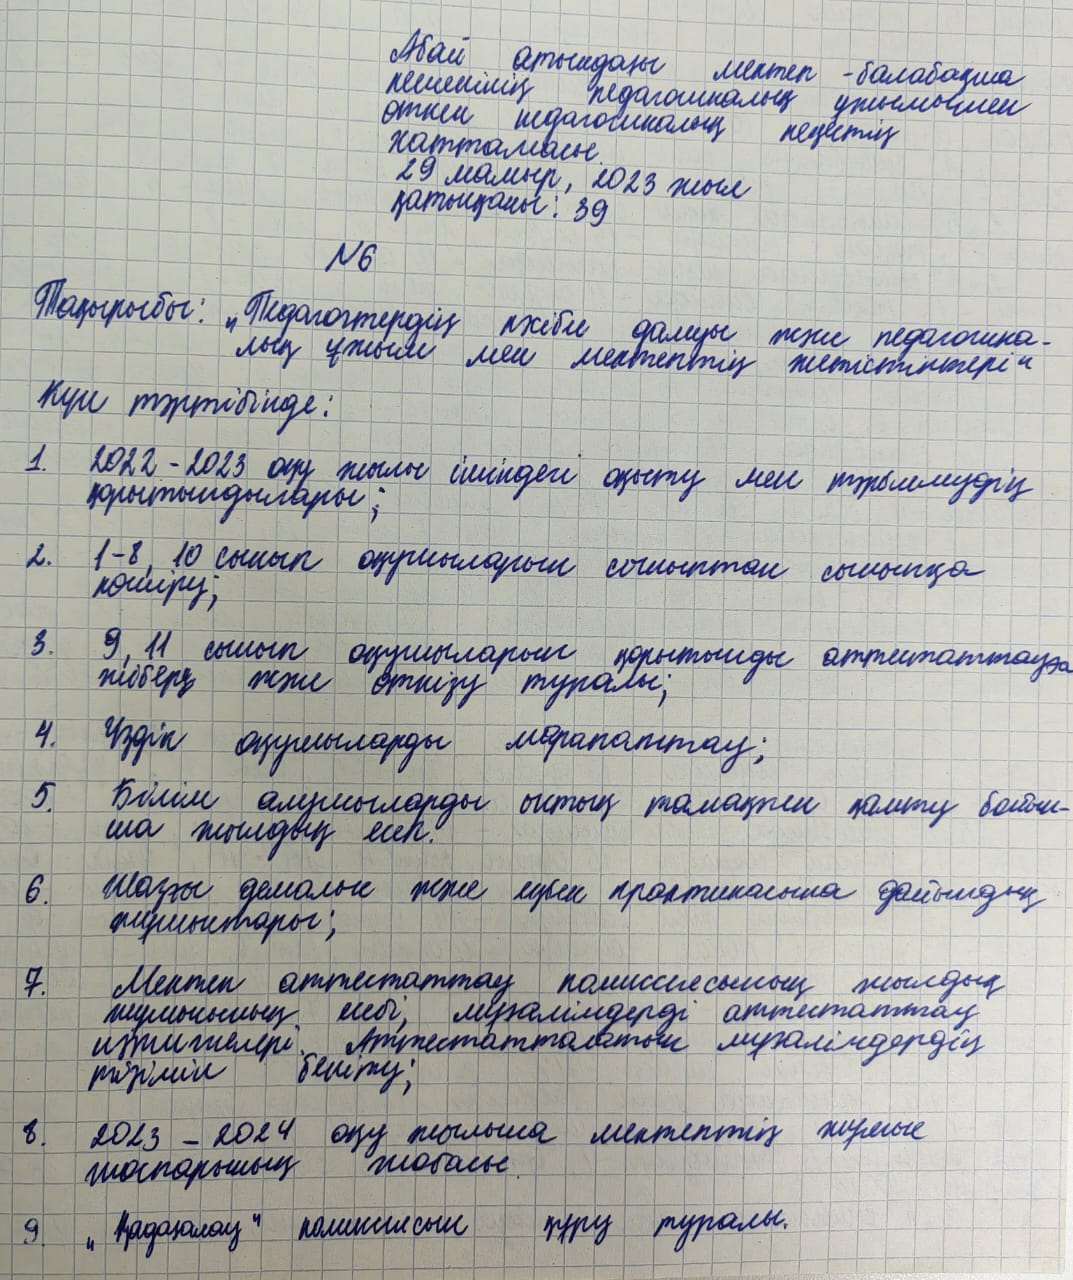 Абай атындағы мектеп-балабақша
кешенінің педагогикалық ұжымымен
өткен педагогикалық кеңестің
хаттамасы.
29 мамыр, 2023 жыл
қатысқаны: 39
№6
Тақырыбы: „Педагогтердің кәсіби дамуы және педагогика-
лық ұжым мен мектептің жетістіктері“
Күн тәртібінде:
1. 2022-2023 оқу жылы ішіндегі оқыту мен тәрбиелеудің
қорытындылары;
2. 1-8, 10 сынып оқушыларын сыныптан сыныпқа
көшіру;
3. 9, 11 сынып оқушыларын қорытынды аттестаттауға
жіберу және өткізу туралы;
4. Үздік оқушыларды марапаттау;
5. Білім алушыларды ыстық тамақпен қамту бойын-
ша жылдық есеп.
6. Жазғы демалыс және еңбек практикасына дайындық
жұмыстары;
7. Мектеп аттестаттау комиссиясының жылдық
жұмысының есебі, мұғалімдерді аттестаттау
нәтижелері. Аттестатталатын мұғалімдердің
тізімін бекіту;
8. 2023-2024 оқу жылына мектептің жұмыс
жоспарының жобасы.
9. „Қадағалау“ комиссиясын құру туралы.